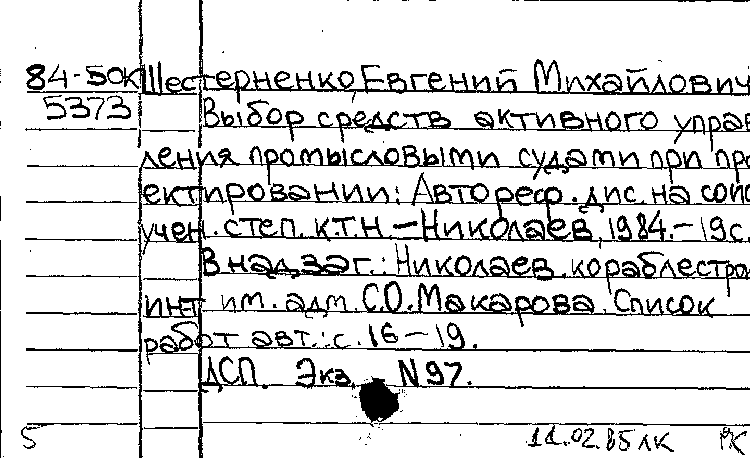 84-50К Шестерненко, Евгений Михайлович
5373 Выбор средств активного управ
ления промысловыми судами при про
ектировании: Автореф. дис. на соис
учен. степ. к.т.н. — Николаев, 1984. — 19с.
В надзаг.: Николаев. кораблестро
ин-т им. адм. С.О. Макарова. Список
работ авт.: с. 16—19.
ДСП. Экз. N97.
5 11.02.85 ЛК РК